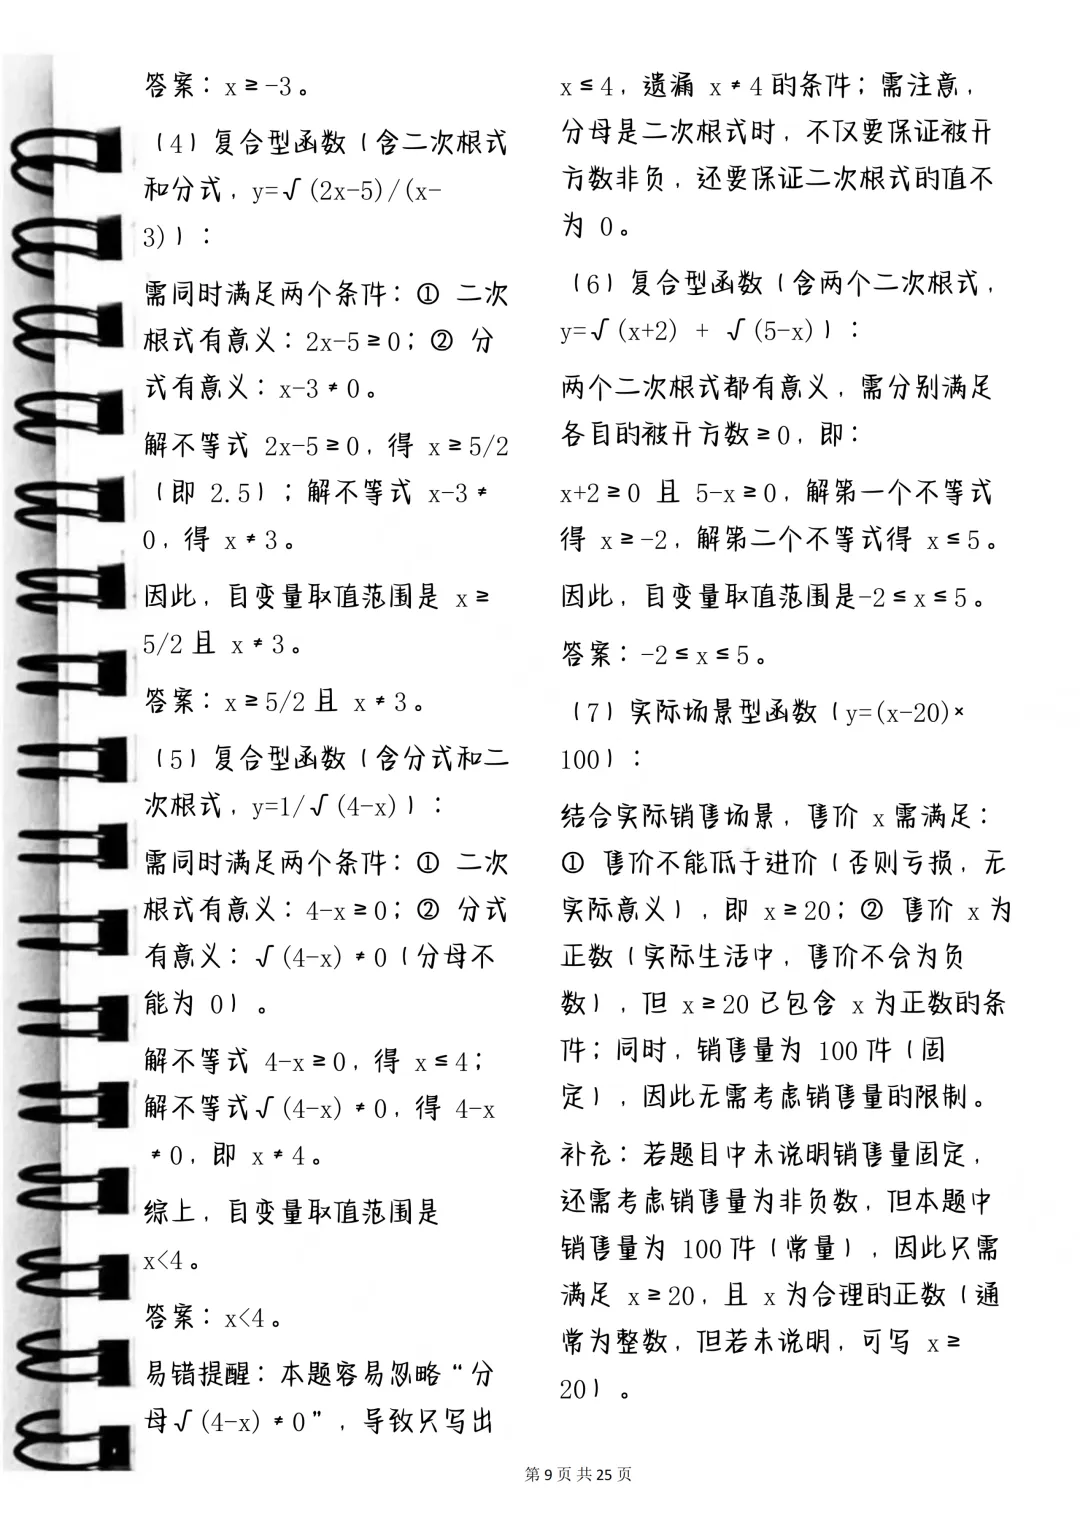 答案：x≥-3。
（4）复合型函数（含二次根式
和分式，y=√(2x-5)/(x-
3)）：
需同时满足两个条件：① 二次
根式有意义：2x-5≥0；② 分
式有意义：x-3≠0。
解不等式 2x-5≥0，得 x≥5/2
（即 2.5）；解不等式 x-3≠
0，得 x≠3。
因此，自变量取值范围是 x≥
5/2且 x≠3。
答案：x≥5/2且 x≠3。
（5）复合型函数（含分式和二
次根式，y=1/√(4-x)）：
需同时满足两个条件：① 二次
根式有意义：4-x≥0；② 分式
有意义：√(4-x)≠0（分母不
能为 0）。
解不等式 4-x≥0，得 x≤4；
解不等式√(4-x)≠0，得 4-x
≠0，即 x≠4。
综上，自变量取值范围是
x<4。
答案：x<4。
易错提醒：本题容易忽略“分
母√(4-x)≠0”，导致只写出
x≤4，遗漏 x≠4的条件；需注意，
分母是二次根式时，不仅要保证被开
方数非负，还要保证二次根式的值不
为 0。
（6）复合型函数（含两个二次根式，
y=√(x+2) + √(5-x)）：
两个二次根式都有意义，需分别满足
各自的被开方数≥0，即：
x+2≥0 且 5-x≥0，解第一个不等式
得 x≥-2，解第二个不等式得 x≤5。
因此，自变量取值范围是-2≤x≤5。
答案：-2≤x≤5。
（7）实际场景型函数（y=(x-20)×
100）：
结合实际销售场景，售价 x需满足：
① 售价不能低于进价（否则亏损，无
实际意义），即 x≥20；② 售价 x为
正数（实际生活中，售价不会为负
数），但 x≥20已包含 x为正数的条
件；同时，销售量为 100件（固
定），因此无需考虑销售量的限制。
补充：若题目中未说明销售量固定，
还需考虑销售量为非负数，但本题中
销售量为 100件（常量），因此只需
满足 x≥20，且 x为合理的正数（通
常为整数，但若未说明，可写 x≥
20）。
第 9 页 共 25 页